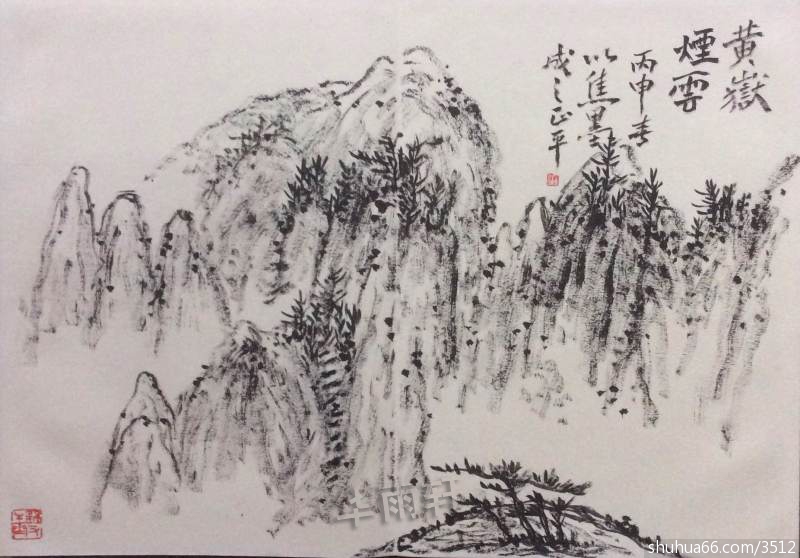 黄嶽
煙雲
丙申春
以焦墨
成之正平
半雨轩
shuhua66.com/3512